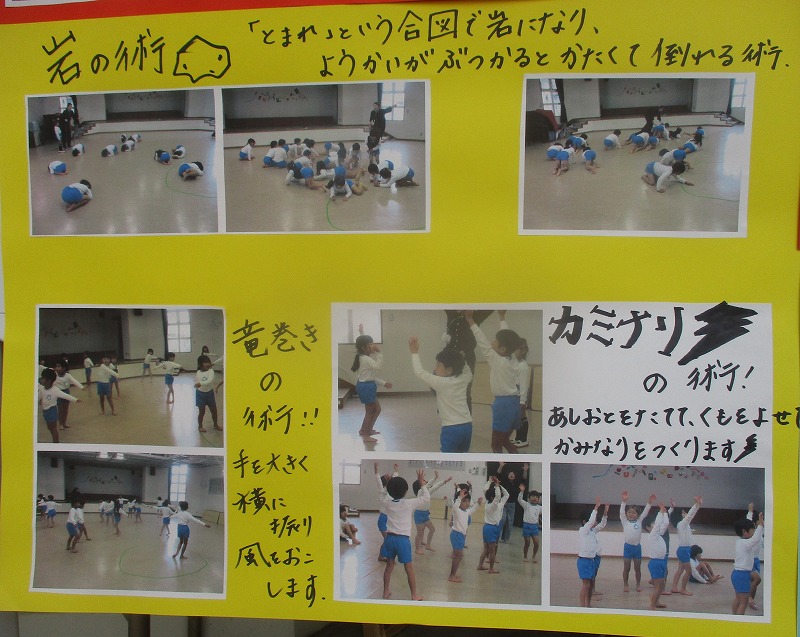 岩の術
「とまれ」という合図で岩になり、
ようかいがぶつかるとかたくて倒れる術.
竜巻き
の
術!!
手を大きく
横に
振り
風をおこ
します.
カミナリ
の術!
あしおとをたてて、くもをよせて
かみなりをつくります